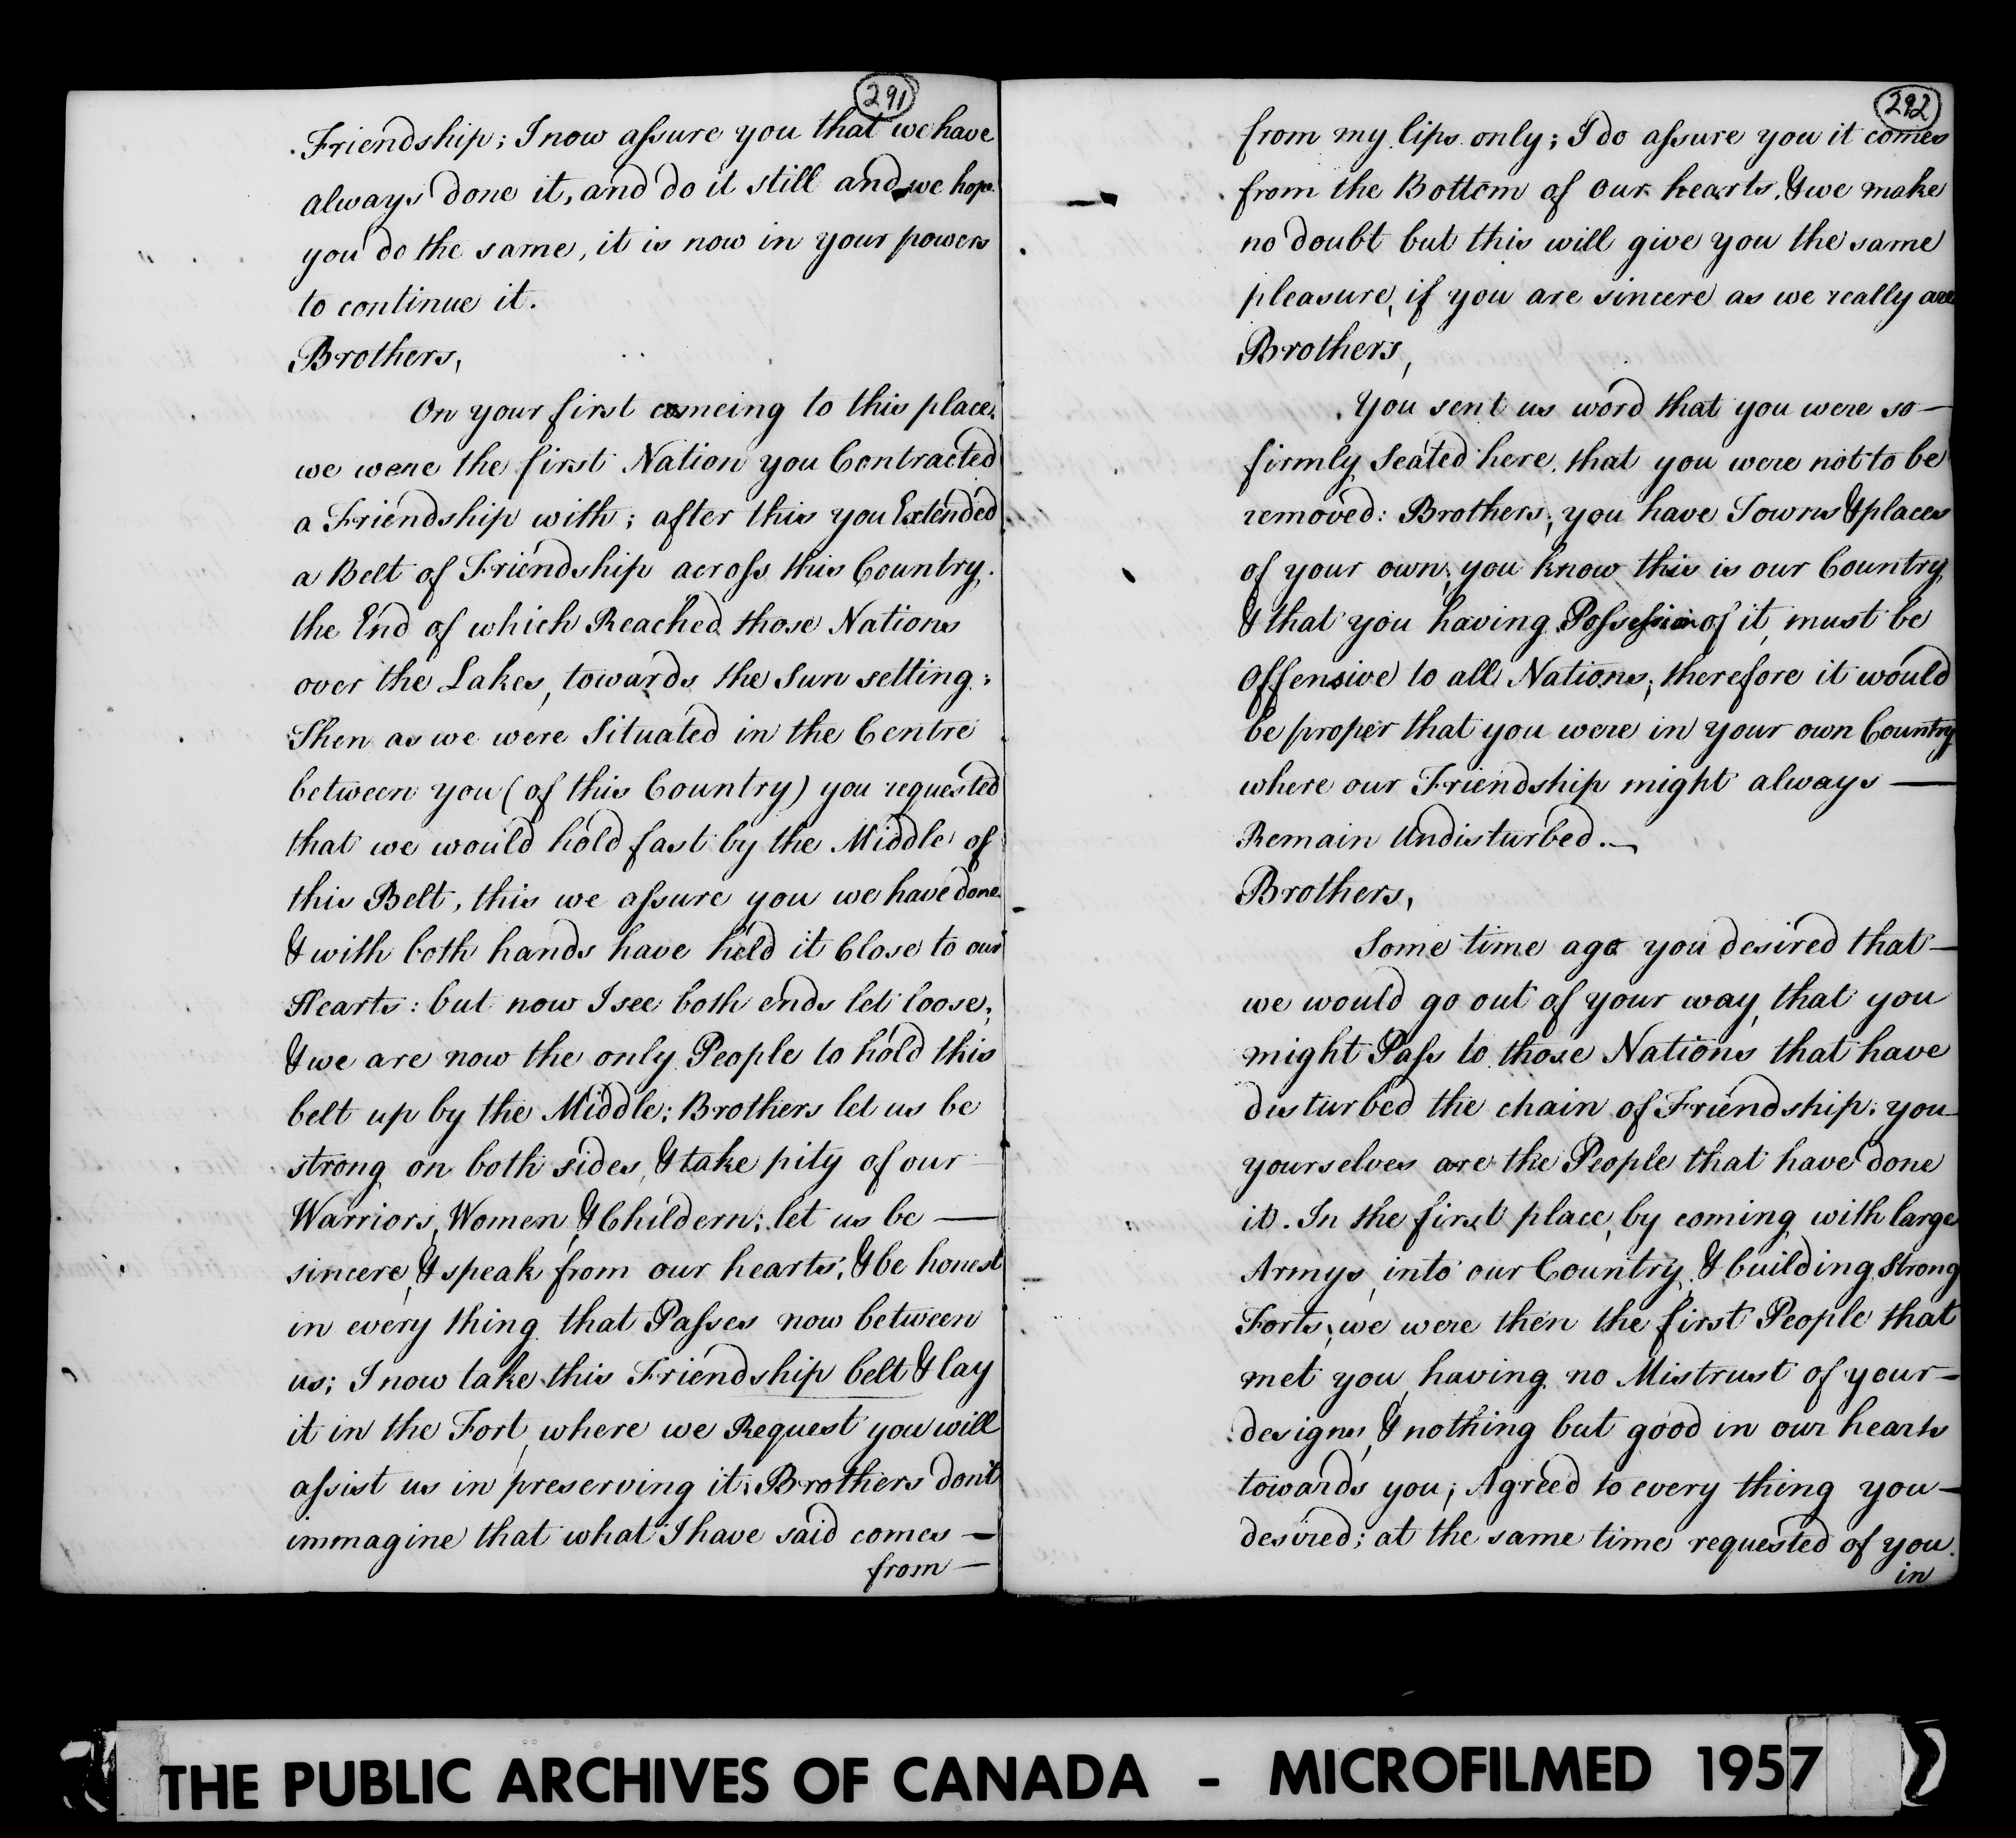 291
Friendship; I now assure you that we have
always done it, and do it still and we hope
you do the same, it is now in your powers
to continue it.
Brothers,
On your first comeing to this place,
we were the first Nation you Contracted
a Friendship with; after this you Extended
a Belt of Friendship across this Country,
the End of which Reached those Nations
over the Lakes, towards the Sun setting;
Then as we were Situated in the Centre
between you (of this Country) you requested
that we would hold fast by the Middle of
this Belt, this we assure you we have done
& with both hands have held it Close to our
Hearts: but now I see both ends let loose;
& we are now the only People to hold this
belt up by the Middle; Brothers let us be
strong on both sides, & take pity of our
Warriors, Women, & Childern; let us be —
sincere, & speak from our hearts, & be honest
in every thing that Passes now between
us; I now take this Friendship belt & lay
it in the Fort, where we Request you will
assist us in preserving it; Brothers don't
immagine that what I have said comes —
from —
292
from my lips only; I do assure you it comes
from the Bottom of our hearts, & we make
no doubt but this will give you the same
pleasure, if you are sincere as we really are
Brothers,
You sent us word that you were so —
firmly Seated here, that you were not to be
removed: Brothers, you have Towns & places
of your own, you know this is our Country,
& that you having Possession of it, must be
Offensive to all Nations, therefore it would
be proper that you were in your own Country
where our Friendship might always —
Remain Undisturbed. —
Brothers,
Some time ago you desired that —
we would go out of your way, that you
might Pass to those Nations that have
disturbed the chain of Friendship; you
yourselves are the People that have done
it. In the first place, by coming with large
Armys, into our Country, & building Strong
Forts, we were then the first People that
met you, having no Mistrust of your —
designs, & nothing but good in our hearts
towards you; Agreed to every thing you —
desired; at the same time requested of you
in
THE PUBLIC ARCHIVES OF CANADA - MICROFILMED 1957